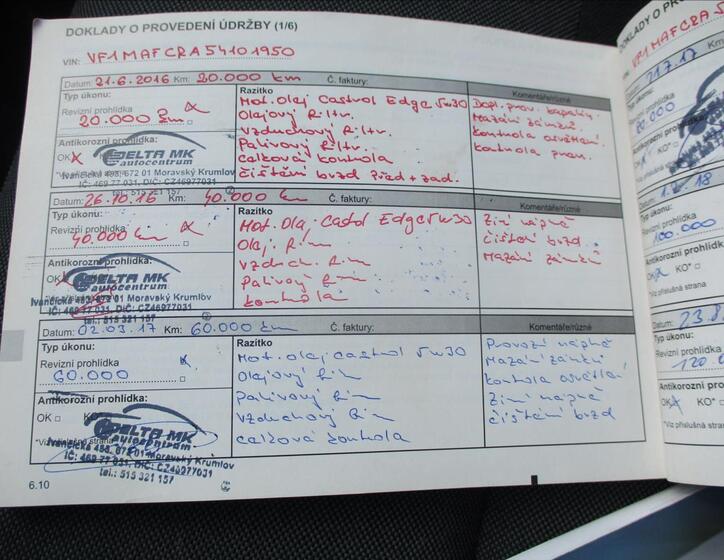 DOKLADY O PROVEDENÍ ÚDRŽBY (1/6)
VIN: VF1MAFCRA54101950
Datum: 21.6.2016 Km: 20.000 km Č. faktury:
Typ úkonu:
Revizní prohlídka
20.000 km
Antikorozní prohlídka:
OK
DELTA MK
autocentrum
Ivančická 453, 672 01 Moravský Krumlov
IČ: 469 77 031, DIČ: CZ46977031
tel.: 515 321 157
Razítko
Mot. olej Castrol Edge 5w30
Olejový Filtr.
Vzduchový Filtr.
Palivový Filtr.
celková kontrola
čištění brzd Před + zad.
Komentáře/různé
Dopl. prov. kapalin.
Mazání zámků.
kontrola osvětlení
kontrola pneu.
Datum: 26.10.16 Km: 40.000 km Č. faktury:
Typ úkonu:
Revizní prohlídka
40.000 km
Antikorozní prohlídka:
OK
DELTA MK
autocentrum
Ivančická 453, 672 01 Moravský Krumlov
IČ: 469 77 031, DIČ: CZ46977031
tel.: 515 321 157
Razítko
Mot. Olej. Castol Edge 5w30
Olej.
Vzduch.
Palivový
kontrola
Komentáře/různé
Zimní náplně
čištění brzd.
Mazání zámků
Datum: 02.03.17 Km: 60.000 km Č. faktury:
Typ úkonu:
Revizní prohlídka
60.000
Antikorozní prohlídka:
OK KO*
*Viz příslušná strana
DELTA MK
autocentrum
Ivančická 453, 672 01 Moravský Krumlov
IČ: 469 77 031, DIČ: CZ46977031
tel.: 515 321 157
Razítko
Mot. olej castrol 5w30
Olejový
Palivový
Vzduchový
celková kontrola
Komentáře/různé
Provozní náplně
Mazání zámků
kontrola osvětlení
Zimní náplně
čištění brzd
6.10
DOKLADY O PR
VIN: VF1MAFCRA54
Datum: 21.7.17
Typ úkonu:
100.000
Antikorozní
OK KO*
*Viz příslušná strana
Datum: 23.8.
Typ úkonu:
Revizní prohlíd
120.0
Antikorozní pro
OK KO*
*Viz příslušná stra